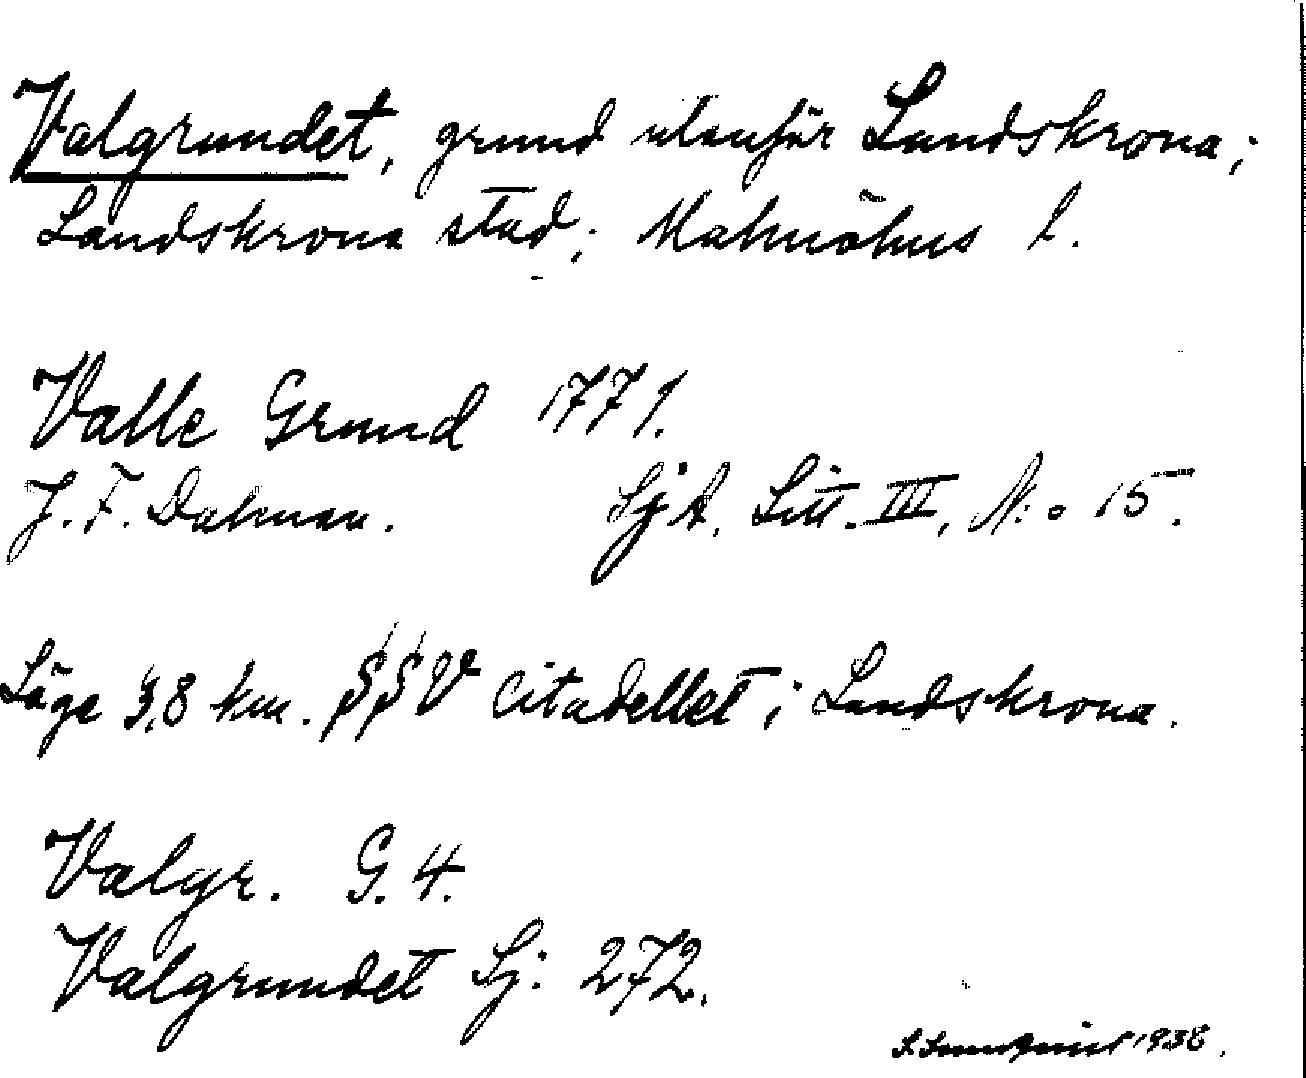 Valgrundet, grund utanför Landskrona;
Landskrona stad; Malmöhus l.
Valle Grund 1771.
J. F. Dalman. SjA, Litt. III, N:o 15.
Läge 3,8 km. SSV citadellet; Landskrona.
Valgr. G. 4.
Valgrundet Sj: 272.
1938.